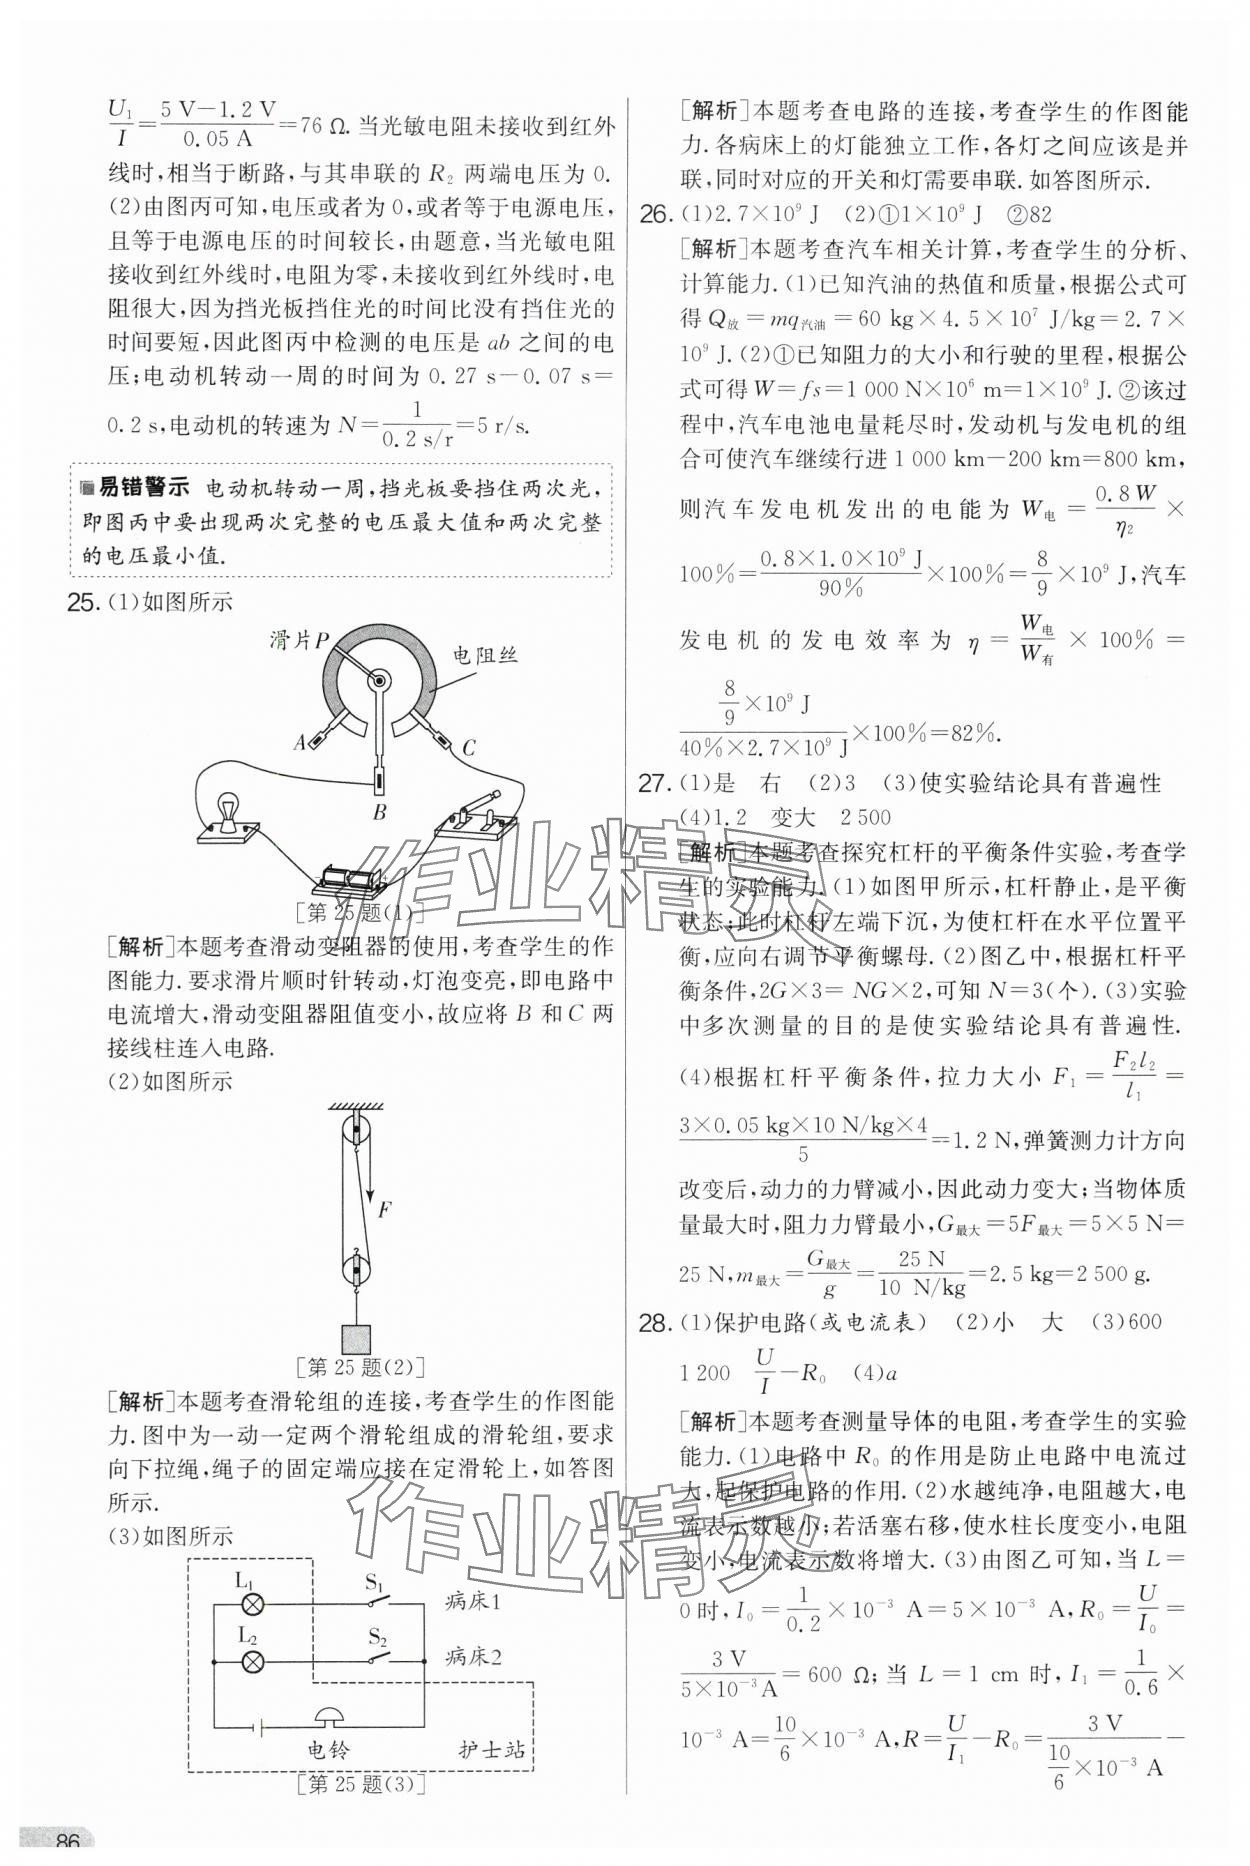 U₁/I=(5 V−1.2 V)/0.05 A=76 Ω. 当光敏电阻未接收到红外
线时,相当于断路,与其串联的 R₂ 两端电压为 0.
(2)由图丙可知,电压或者为0,或者等于电源电压,
且等于电源电压的时间较长,由题意,当光敏电阻
接收到红外线时,电阻为零,未接收到红外线时,电
阻很大,因为挡光板挡住光的时间比没有挡住光的
时间要短,因此图丙中检测的电压是 ab 之间的电
压;电动机转动一周的时间为 0.27 s−0.07 s=
0.2 s,电动机的转速为 N=1/(0.2 s/r)=5 r/s.
易错警示 电动机转动一周,挡光板要挡住两次光,
即图丙中要出现两次完整的电压最大值和两次完整
的电压最小值.
25. (1)如图所示
滑片P
电阻丝
A
C
B
[第 25 题(1)]
[解析]本题考查滑动变阻器的使用,考查学生的作
图能力.要求滑片顺时针转动,灯泡变亮,即电路中
电流增大,滑动变阻器阻值变小,故应将 B 和 C 两
接线柱连入电路.
(2)如图所示
F
[第 25 题(2)]
[解析]本题考查滑轮组的连接,考查学生的作图能
力.图中为一动一定两个滑轮组成的滑轮组,要求
向下拉绳,绳子的固定端应接在定滑轮上,如答图
所示.
(3)如图所示
L₁ S₁ 病床1
L₂ S₂ 病床2
电铃 护士站
[第 25 题(3)]
86
[解析]本题考查电路的连接,考查学生的作图能
力.各病床上的灯能独立工作,各灯之间应该是并
联,同时对应的开关和灯需要串联.如答图所示.
26. (1)2.7×10⁹ J (2)①1×10⁹ J ②82
[解析]本题考查汽车相关计算,考查学生的分析、
计算能力.(1)已知汽油的热值和质量,根据公式可
得 Q放=mq汽油=60 kg×4.5×10⁷ J/kg=2.7×
10⁹ J.(2)①已知阻力的大小和行驶的里程,根据公
式可得 W=fs=1 000 N×10⁶ m=1×10⁹ J.②该过
程中,汽车电池电量耗尽时,发动机与发电机的组
合可使汽车继续行进 1 000 km−200 km=800 km,
则汽车发电机发出的电能为 W电=0.8W/η₂×
100%=(0.8×1.0×10⁹ J)/90%×100%=8/9×10⁹ J,汽车
发电机的发电效率为 η=W电/W有×100%=
(8/9×10⁹ J)/(40%×2.7×10⁹ J)×100%=82%.
27. (1)是 右 (2)3 (3)使实验结论具有普遍性
(4)1.2 变大 2 500
[解析]本题考查探究杠杆的平衡条件实验,考查学
生的实验能力.(1)如图甲所示,杠杆静止,是平衡
状态;此时杠杆左端下沉,为使杠杆在水平位置平
衡,应向右调节平衡螺母.(2)图乙中,根据杠杆平
衡条件,2G×3= NG×2,可知 N=3(个).(3)实验
中多次测量的目的是使实验结论具有普遍性.
(4)根据杠杆平衡条件,拉力大小 F₁=F₂l₂/l₁=
(3×0.05 kg×10 N/kg×4)/5=1.2 N,弹簧测力计方向
改变后,动力的力臂减小,因此动力变大;当物体质
量最大时,阻力力臂最小,G最大=5F最大=5×5 N=
25 N,m最大=G最大/g=25 N/(10 N/kg)=2.5 kg=2 500 g.
28. (1)保护电路(或电流表) (2)小 大 (3)600
1 200 U/I−R₀ (4)a
[解析]本题考查测量导体的电阻,考查学生的实验
能力.(1)电路中 R₀ 的作用是防止电路中电流过
大,起保护电路的作用.(2)水越纯净,电阻越大,电
流表示数越小;若活塞右移,使水柱长度变小,电阻
变小,电流表示数将增大.(3)由图乙可知,当 L=
0时,I₀=1/0.2×10⁻³ A=5×10⁻³ A,R₀=U/I₀=
3 V/(5×10⁻³ A)=600 Ω;当 L=1 cm 时,I₁=1/0.6×
10⁻³ A=10/6×10⁻³ A,R=U/I₁−R₀=3 V/(10/6×10⁻³ A)−
作业精灵
作业精灵